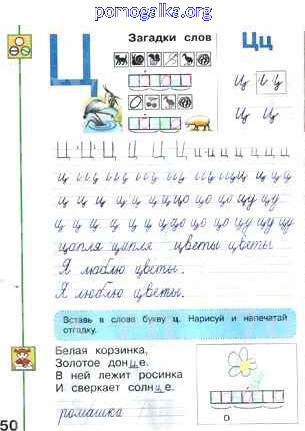 pomogalka.org
Загадки слов
Ц
Цц
ц ц ц
ц ц
Ц Ц Ц Ц Ц Ц ц ц ц ц ц
ц ц ц ц ц ц ц ц ц ц ц ц
ц ц ц ц ц ц цо цо цу цу
ц ц ц ц ц ц цо цо цо цу цу цу
цапля цапля цветы цветы
Я люблю цветы.
Я люблю цветы.
Вставь в слова букву ц. Нарисуй и напечатай
отгадку.
Белая корзинка,
Золотое донце.
В ней лежит росинка
И сверкает солнце.
ромашка
о
50